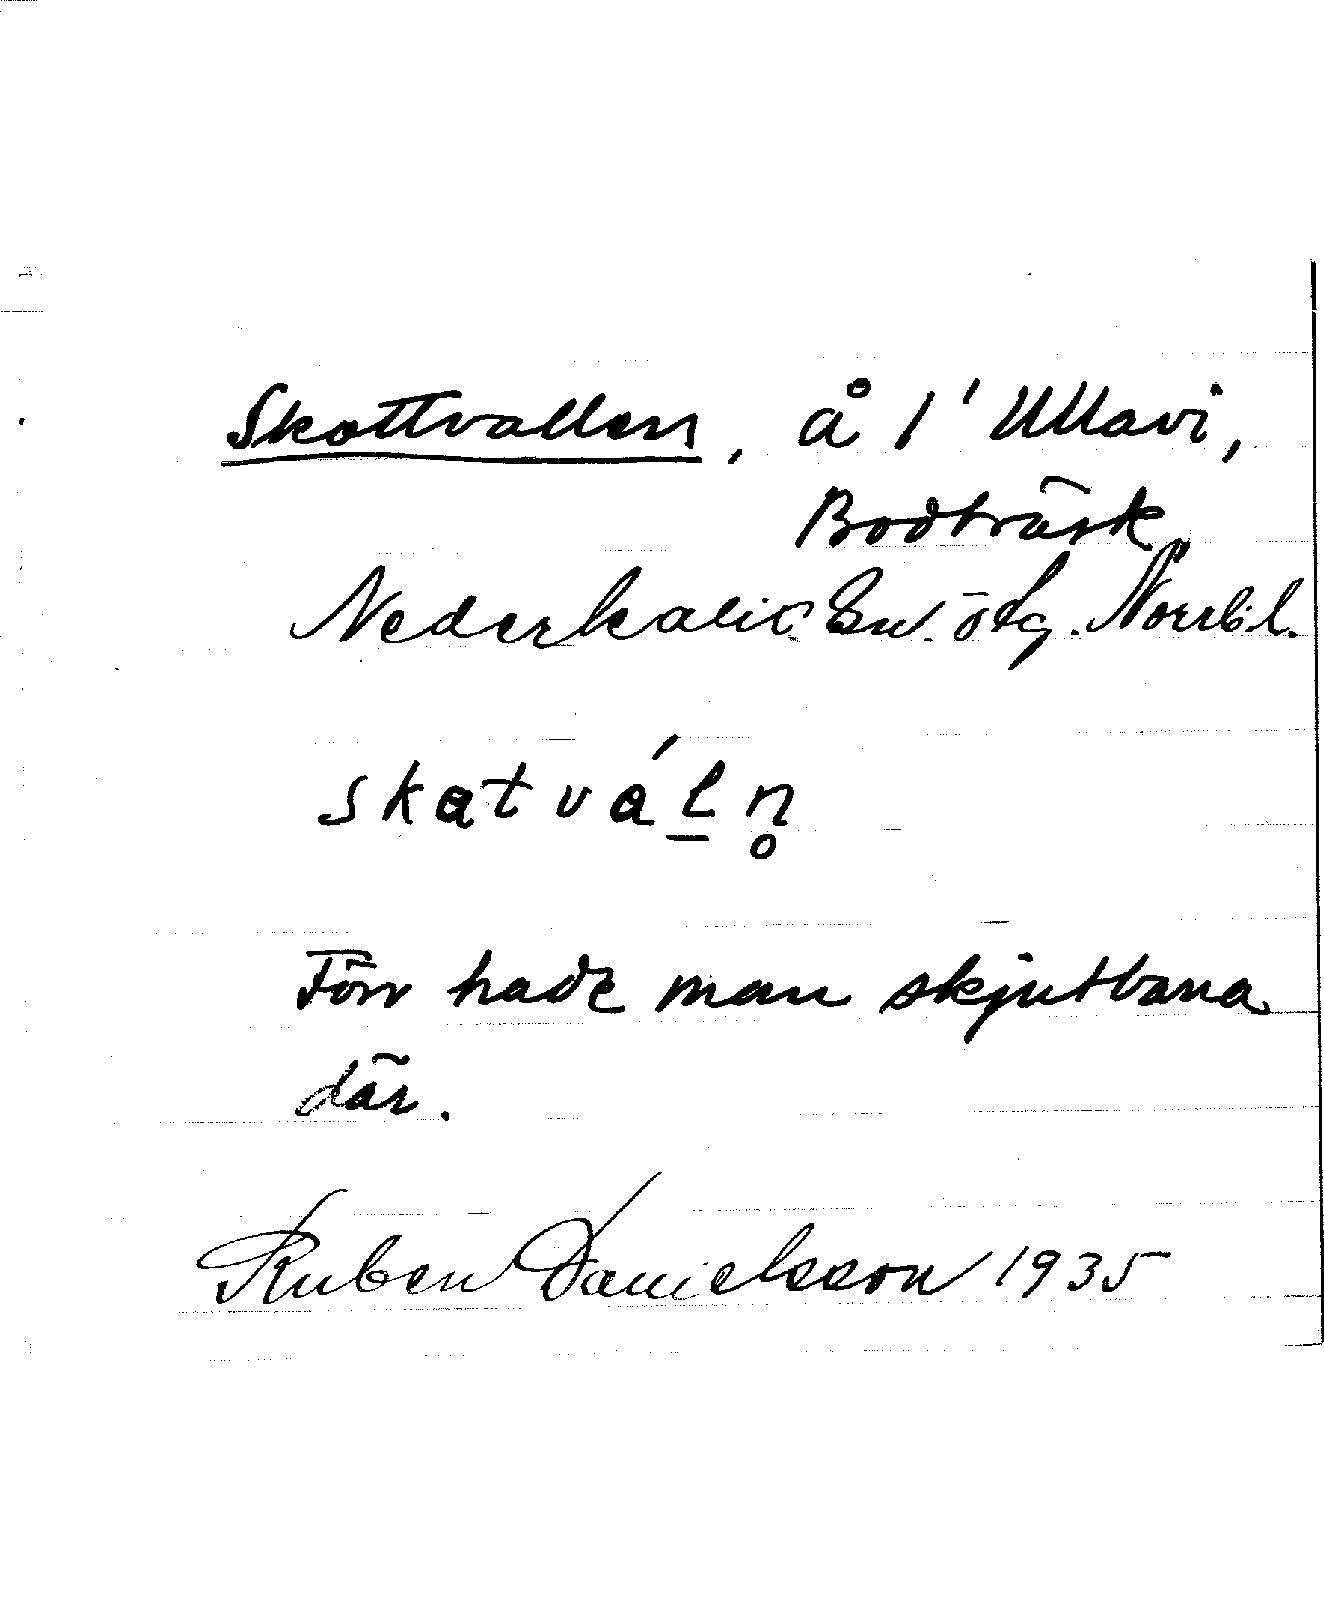 Skottvallen, å 1' Ullavi,
Bodträsk
Nederkalix Sn. ötg. Norrb.l.
skatvál̲n̥
Förr hade man skjutbana
där.
Ruben Danielsson 1935